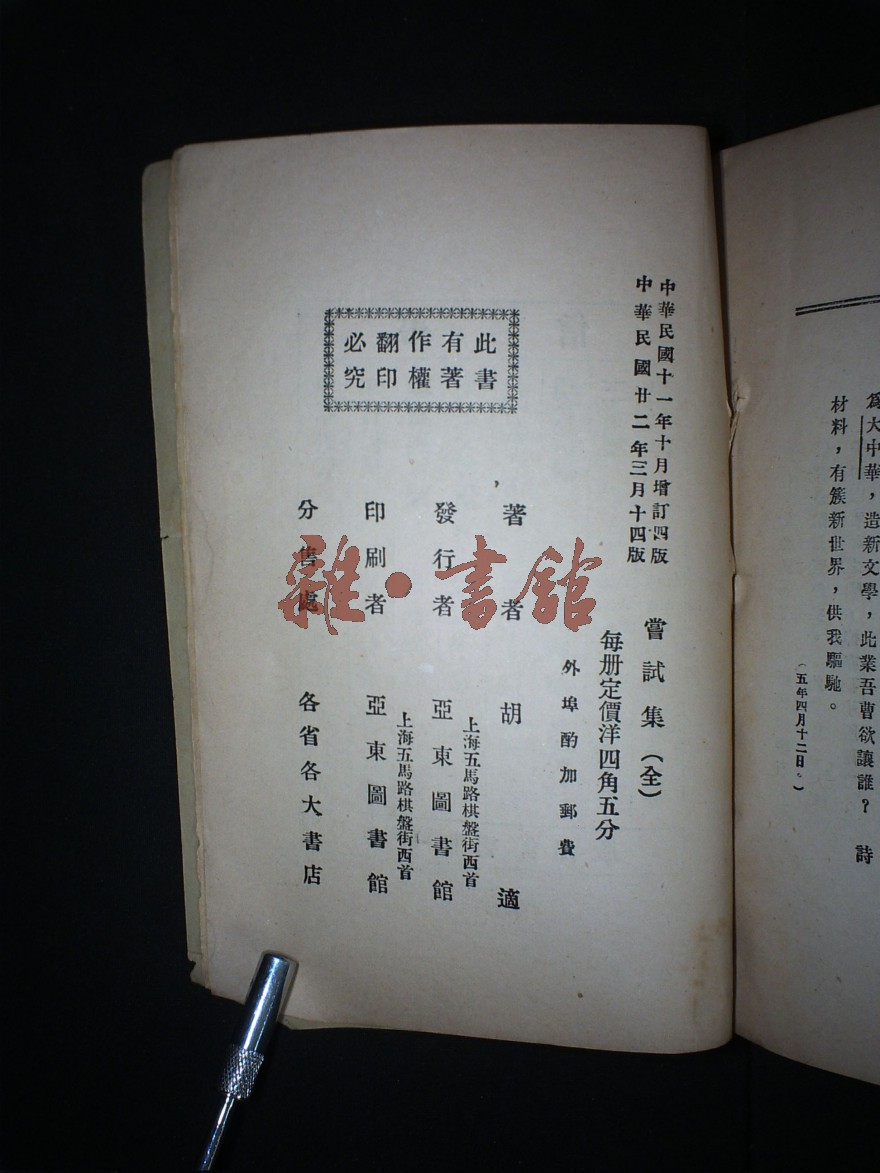 爲大中華，造新文學，此業吾曹欲讓誰？　詩
材料，有簇新世界，供我驅馳。
（五年四月十二日。）
中華民國十一年十月增訂四版
中華民國廿二年三月十四版
嘗試集（全）
每册定價洋四角五分
外埠酌加郵費
著者　胡適
上海五馬路棋盤街西首
發行者　亞東圖書館
上海五馬路棋盤街西首
印刷者　亞東圖書館
分售處　各省各大書店
此書
有著
作權
翻印
必究
雜·書館